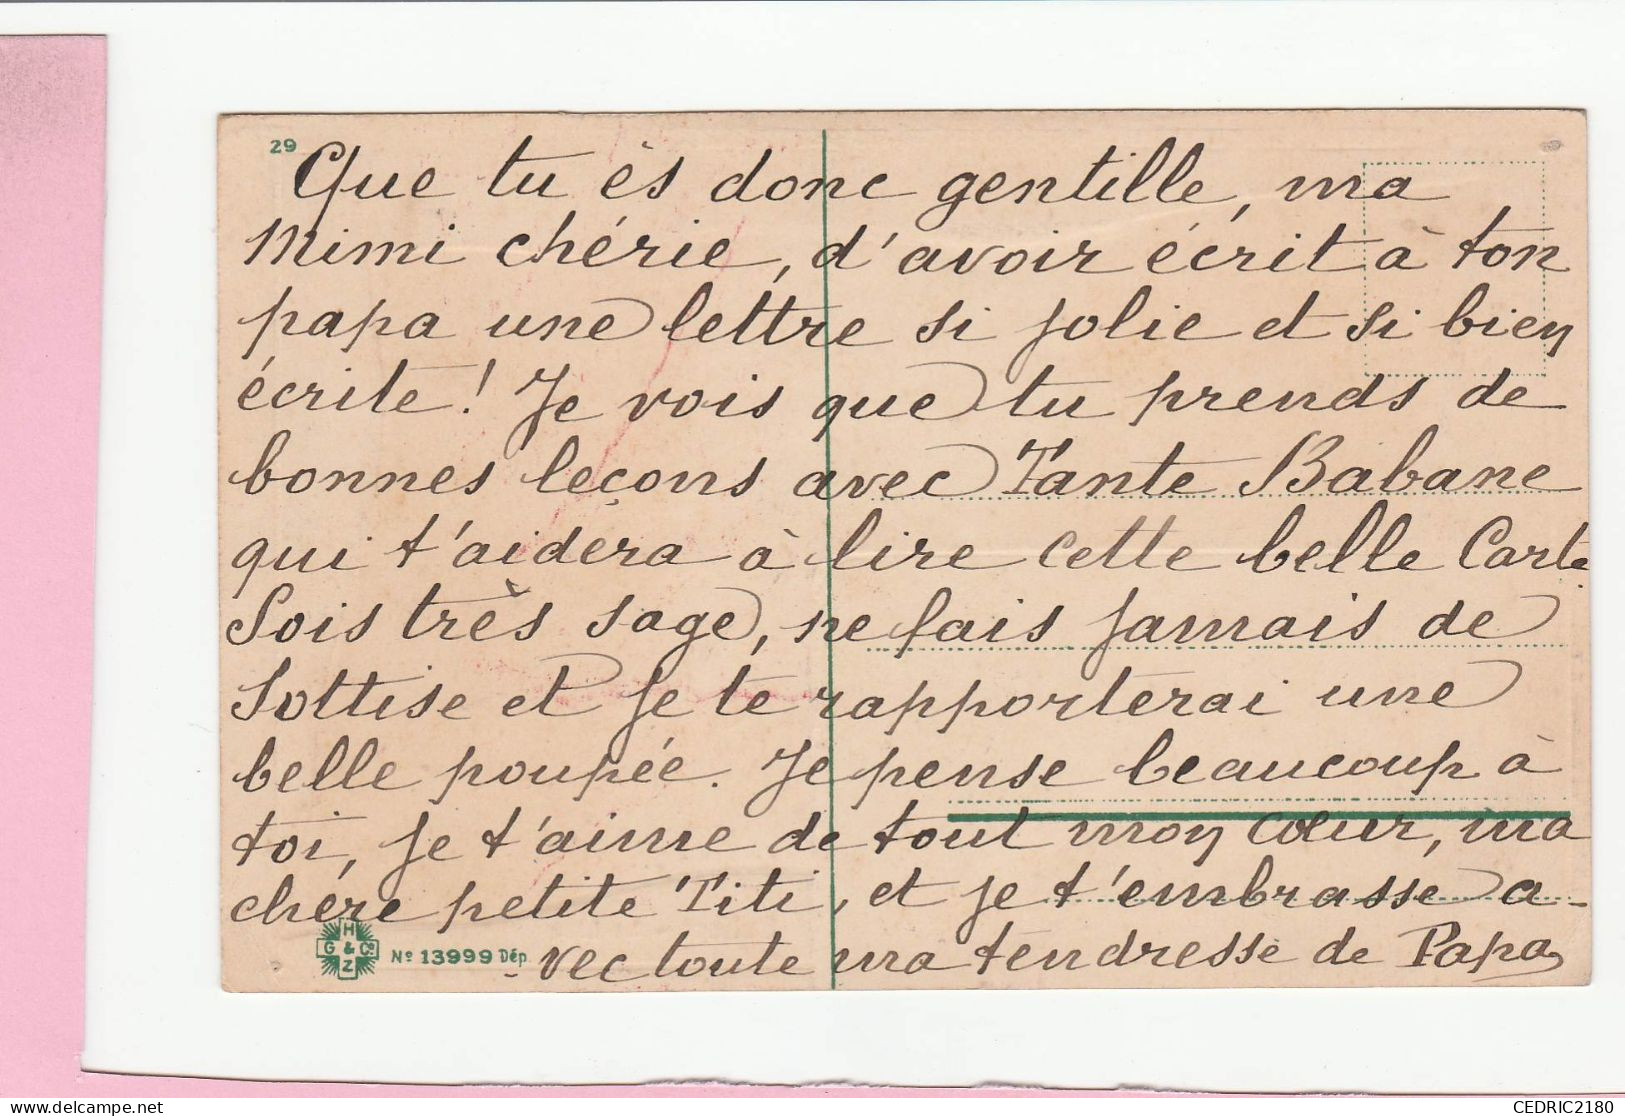 29
Que tu ès donc gentille, ma
Mimi chérie, d'avoir écrit à ton
papa une lettre si jolie et si bien
écrite! Je vois que tu prends de
bonnes leçons avec Tante Babane
qui t'aidera à lire cette belle Carte.
Sois très sage, ne fais jamais de
Sottise et je te rapporterai une
belle poupée. Je pense beaucoup à
toi, je t'aime de tout mon cœur, ma
chére petite Titi, et je t'embrasse a-
-vec toute ma tendresse de Papa
H
G & Co
Z
No 13999 Dép
CEDRIC2180